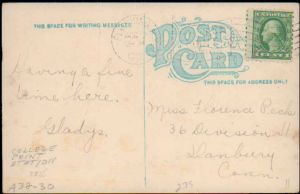 THIS SPACE FOR WRITING MESSAGES
POST CARD
THIS SPACE FOR ADDRESS ONLY
Having a fine
time here.
Gladys.
Miss Florence Peck
36 Division St
Danbury
Conn.
COLLEGE
POINT
STATION
A38-30
235